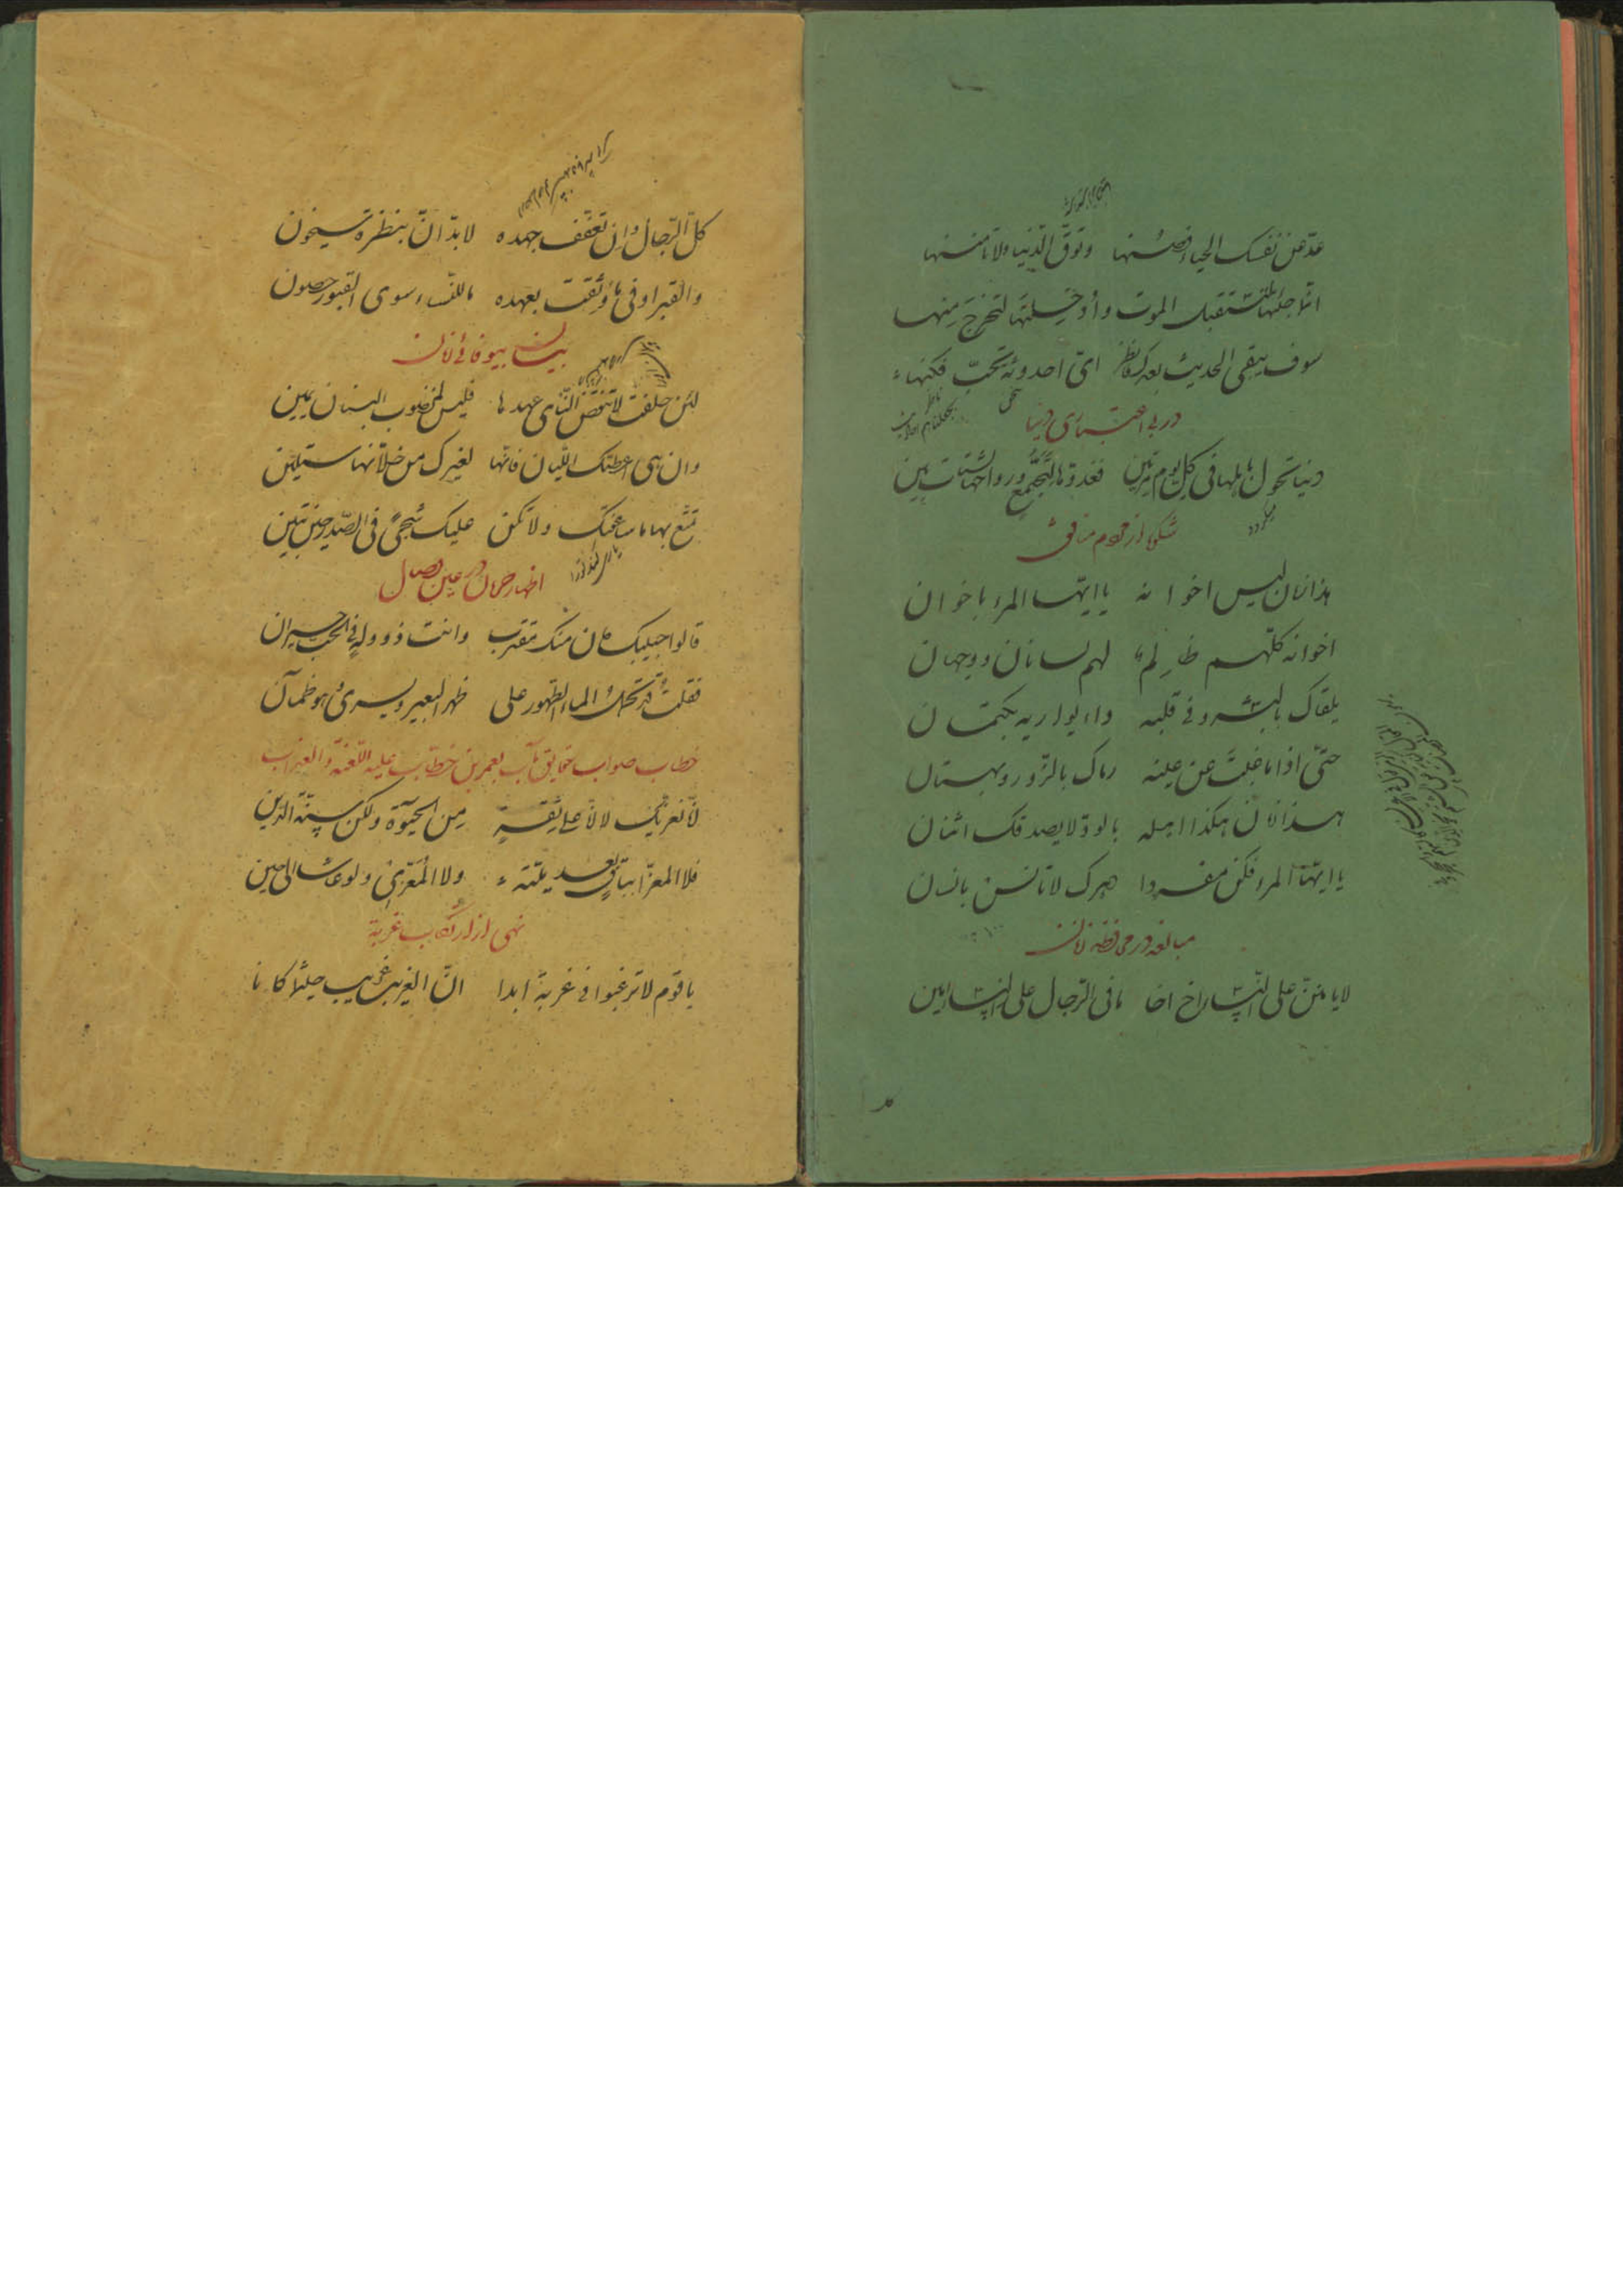 عد من نفسك الحياة فصنها وتوق الدنيا ولا تأمنها
انما جئتها لتستقبل الموت وأدخلتها لتخرج منها
سوف يبقى الحديث بعدك فانظر اى احدوثة تحب فكنهاء
در بی اعتباری دنیا
دنيا تحول باهلها فى كل يوم مرتين فغدوها لتجمع ورواحها لشتات بين
شکوا از مردم منافق
هذا زمان ليس اخوانه يا ايها المرء باخوان
اخوانه كلهم ظالم لهم لسانان ووجهان
يلقاك بالبشر وفى قلبه داء يواريه بكتمان
حتى اذا ما غبت عن عينه رماك بالزور وبهتان
هذا زمان هكذا اهله بالود لا يصدقك اثنان
يا ايها المرء فكن مفردا دهرك لا تأنس بانسان
مبالغه در محافظه زنان
لا يأمنن على النساء اخ اخا ما فى الرجال على النساء امين
كل الرجال وان تعفف جهده لا بد ان بنظرة سيخون
والقبر اوفى ما وثقت بعهده ما للنساء سوى القبور حصون
بیان بیوفائی زنان
لئن حلفت لا تنقض النأى عهدها فليس لمخضوب البنان يمين
وان هى اعطتك الليان فانها لغيرك من خلانها ستلين
تمتع بها ما ساعفتك ولا تكن عليك شجى فى الصدر حين تبين
اظهار حرمان در عین وصال
قالوا حبيبك دان منك مقترب وانت ذو وله فى الحب حيران
فقلت قد تحمل الماء الطهور على ظهر البعير ويسرى وهو ظمآن
خطاب صواب حقایق مآب بعمر بن خطاب علیه اللعنة والعذاب
انا نعزيك لا انا على ثقة من الحيوة ولكن سنة الدين
فلا المعزا بباق بعد ميته ولا المعزى ولو عاشا الى حين
نهی از ارتکاب غربة
يا قوم لا ترغبوا فى غربة ابدا ان الغريب غريب حيثما كانا